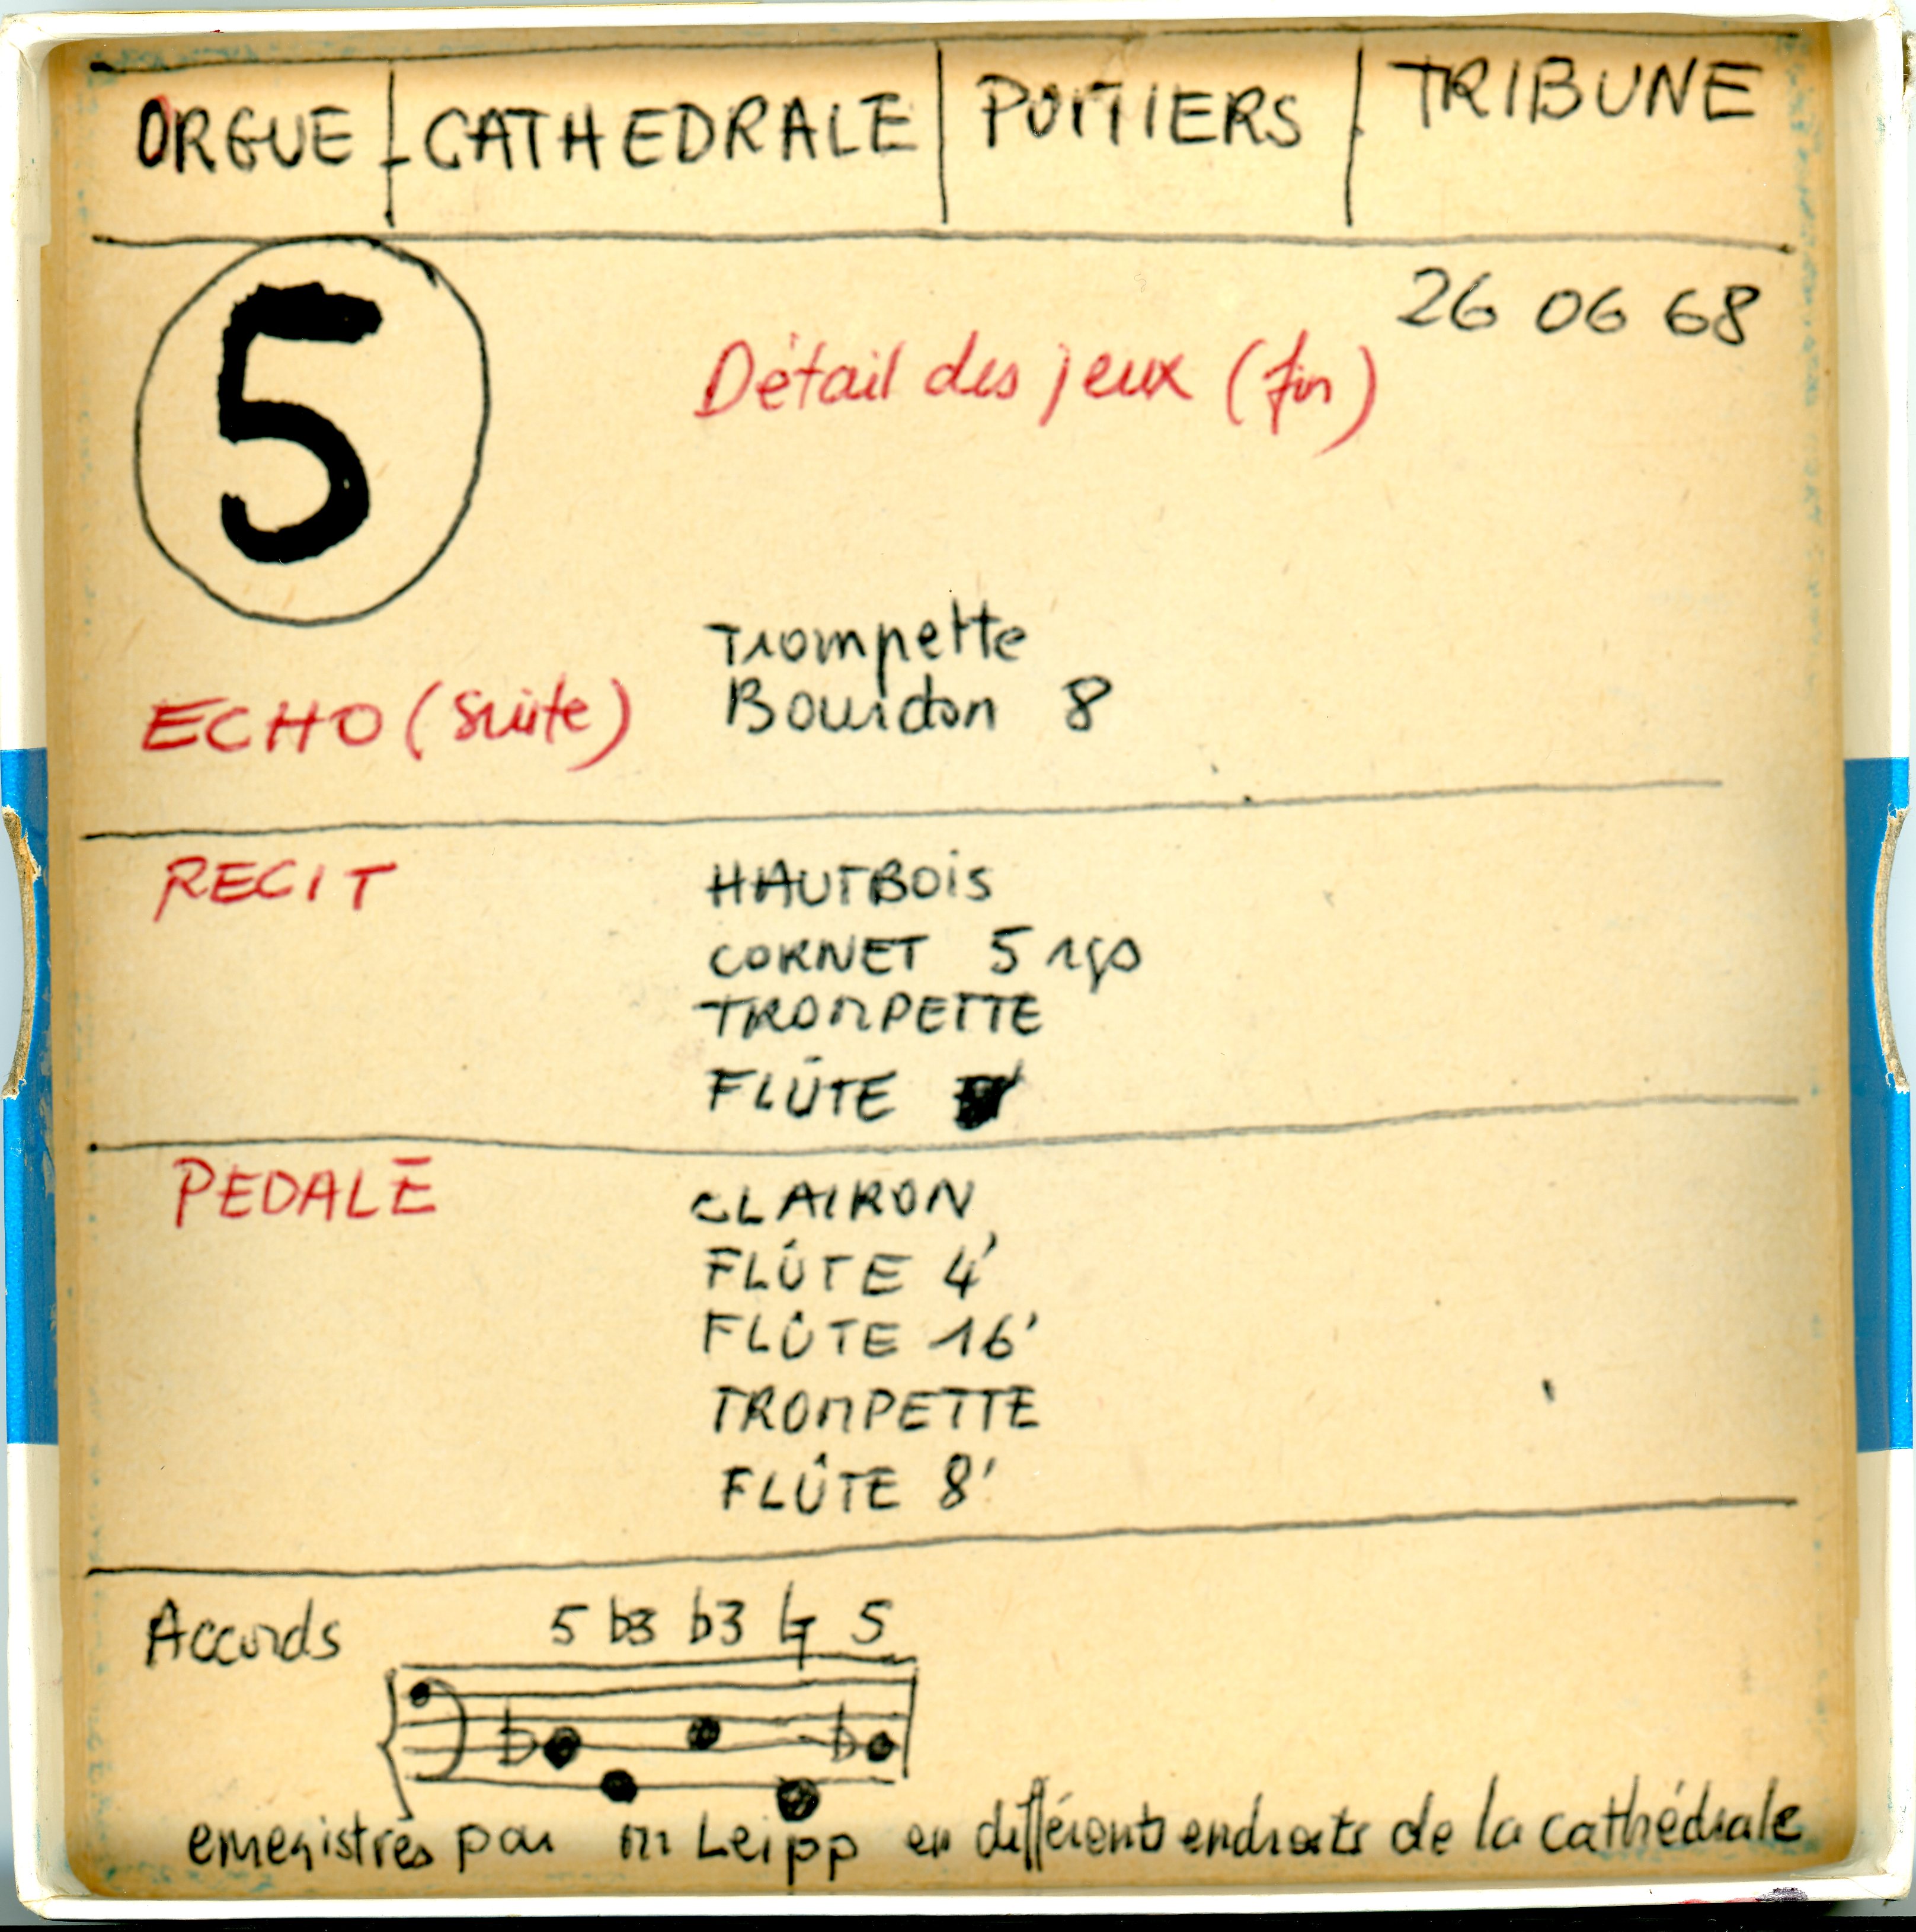 ORGUE CATHEDRALE POITIERS TRIBUNE
5
26 06 68
Détail des jeux (fin)
Trompette
ECHO (suite) Bourdon 8
RECIT HAUTBOIS
CORNET 5 rgs
TROMPETTE
FLÛTE
PEDALE CLAIRON
FLÛTE 4'
FLÛTE 16'
TROMPETTE
FLÛTE 8'
Accords 5 b3 b3 5
enregistrés par m Leipp en différents endroits de la cathédrale